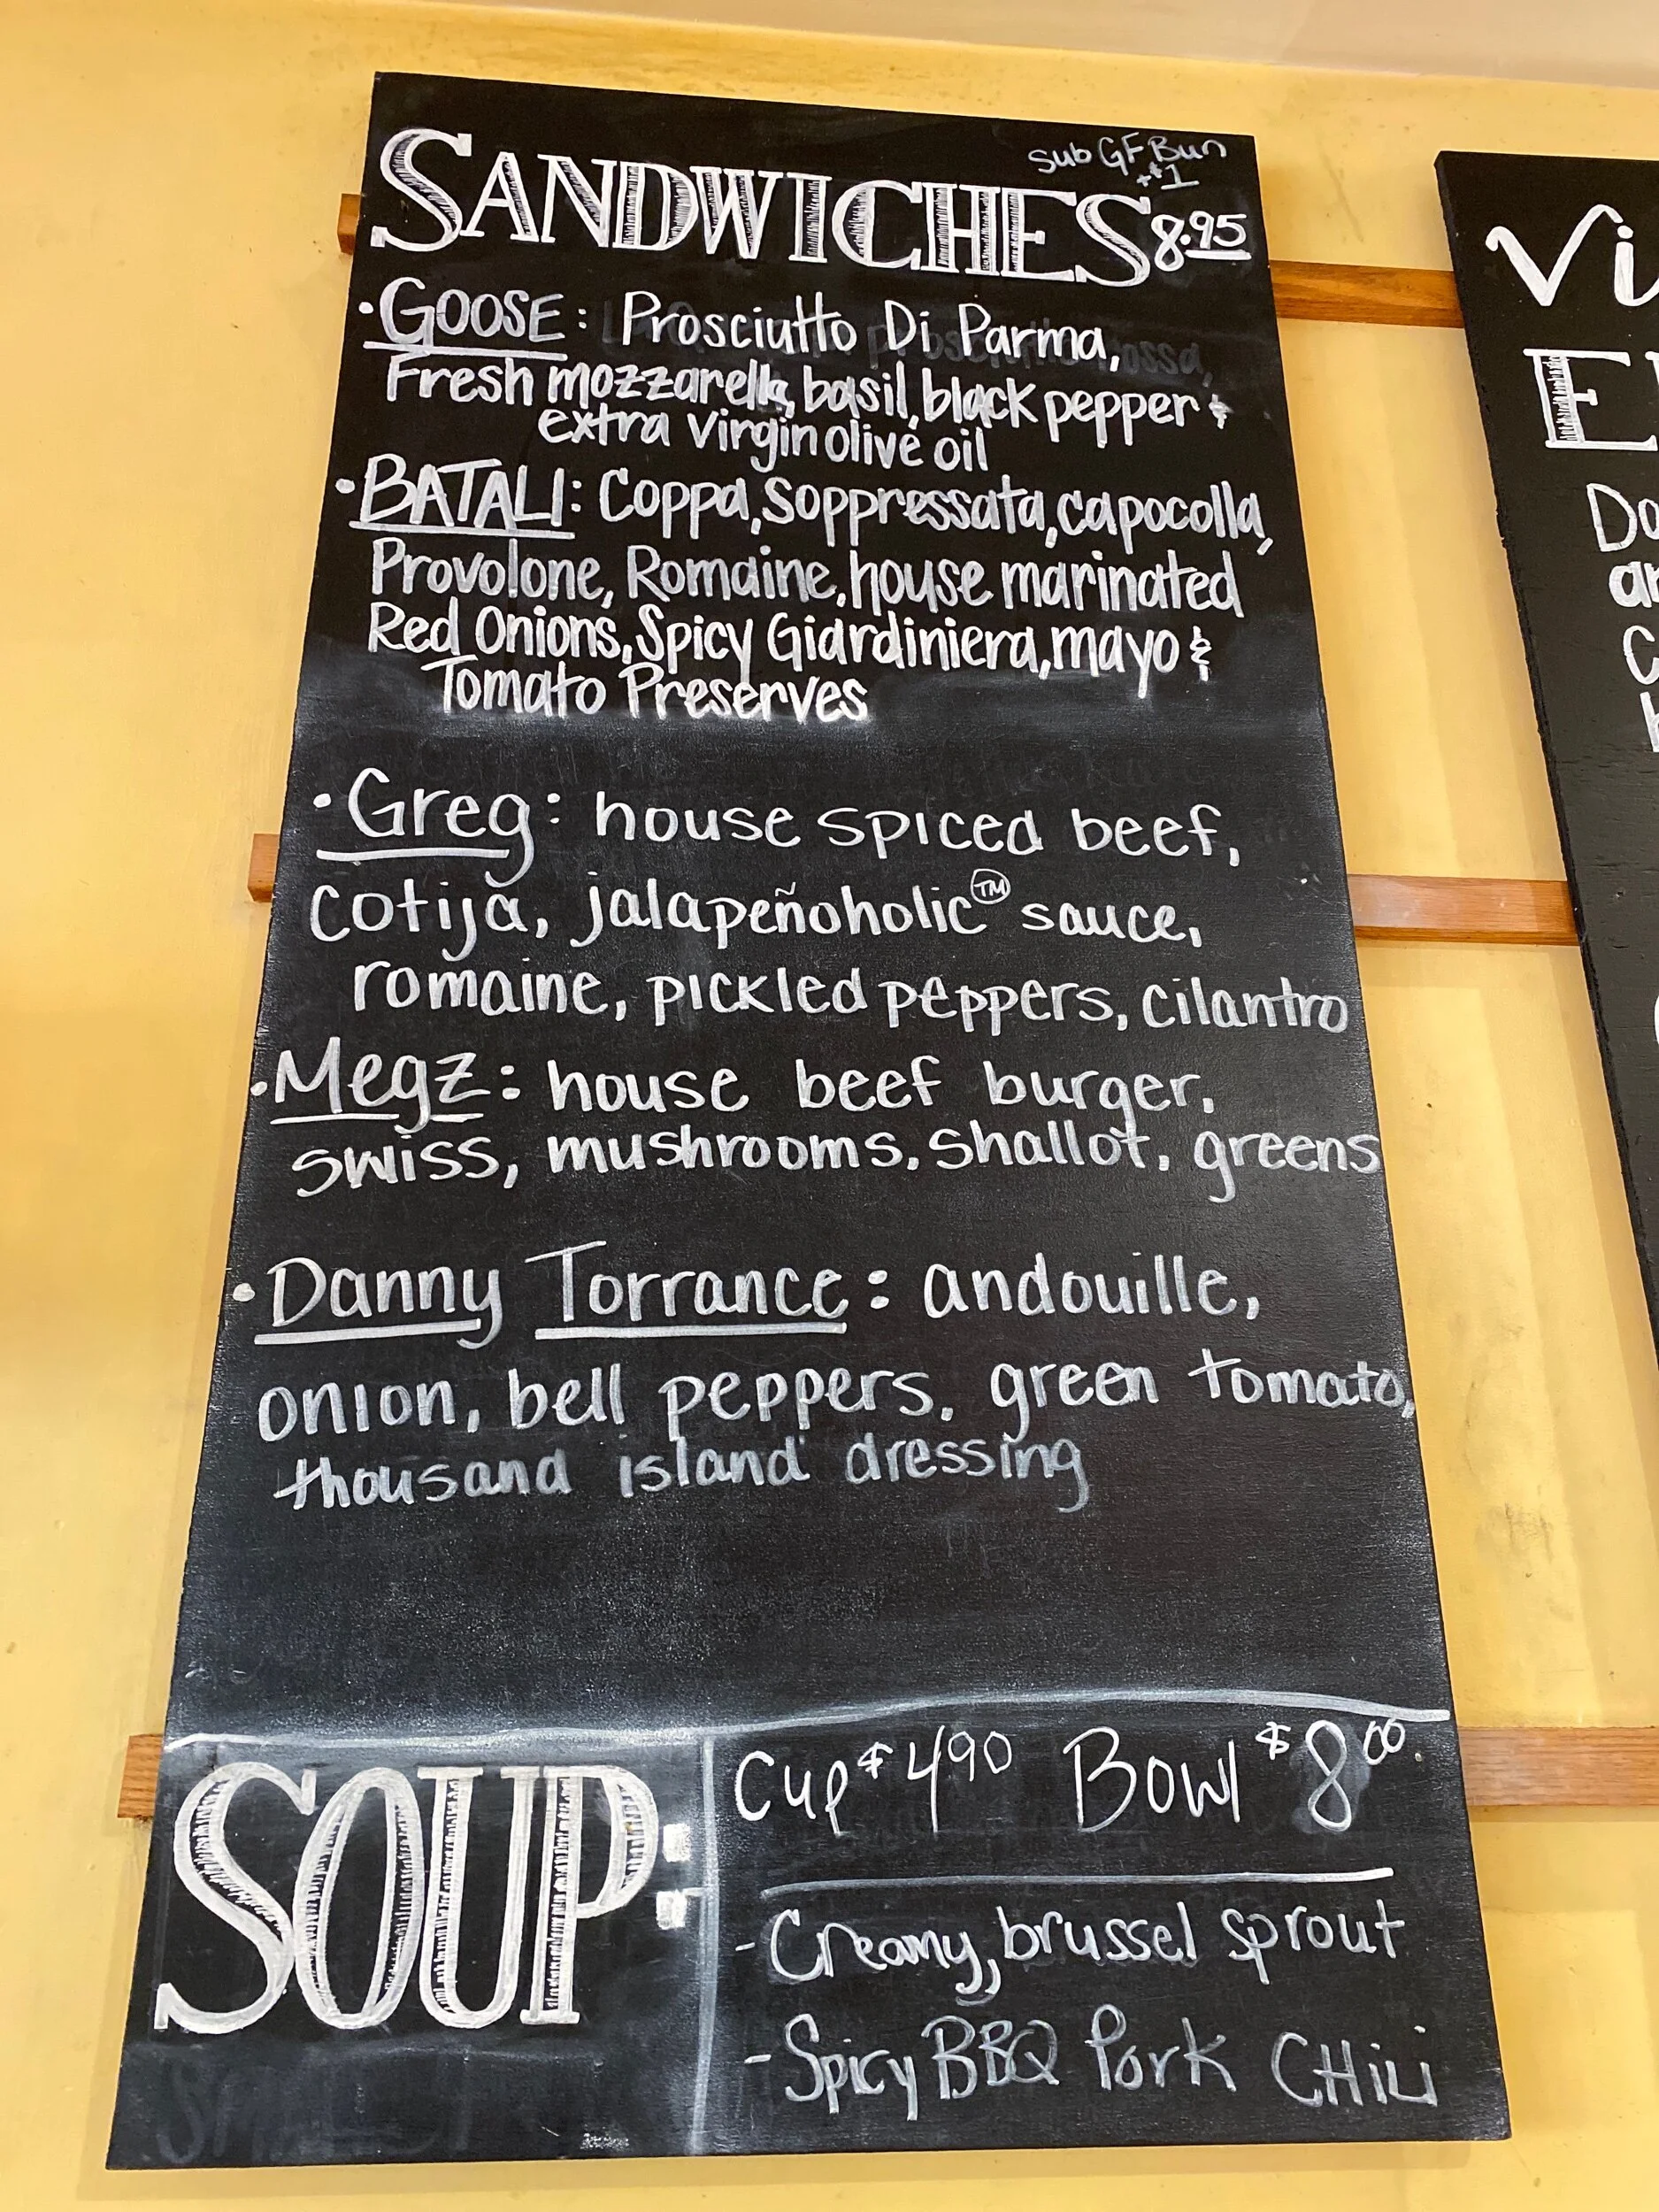 Sub GF Bun
+$1
SANDWICHES 8.95
• GOOSE: Prosciutto Di Parma,
Fresh mozzarella, basil, black pepper &
extra virgin olive oil
• BATALI: Coppa, Soppressata, capocolla,
Provolone, Romaine, house marinated
Red Onions, Spicy Giardiniera, mayo &
Tomato Preserves
• Greg: house spiced beef,
cotija, jalapeñoholic™ sauce,
romaine, pickled peppers, cilantro
• Megz: house beef burger,
swiss, mushrooms, shallot, greens
• Danny Torrance: andouille,
onion, bell peppers, green tomato,
thousand island dressing
SOUP:
Cup $4.90 Bowl $8.00
- Creamy, brussel sprout
- Spicy BBQ Pork CHili